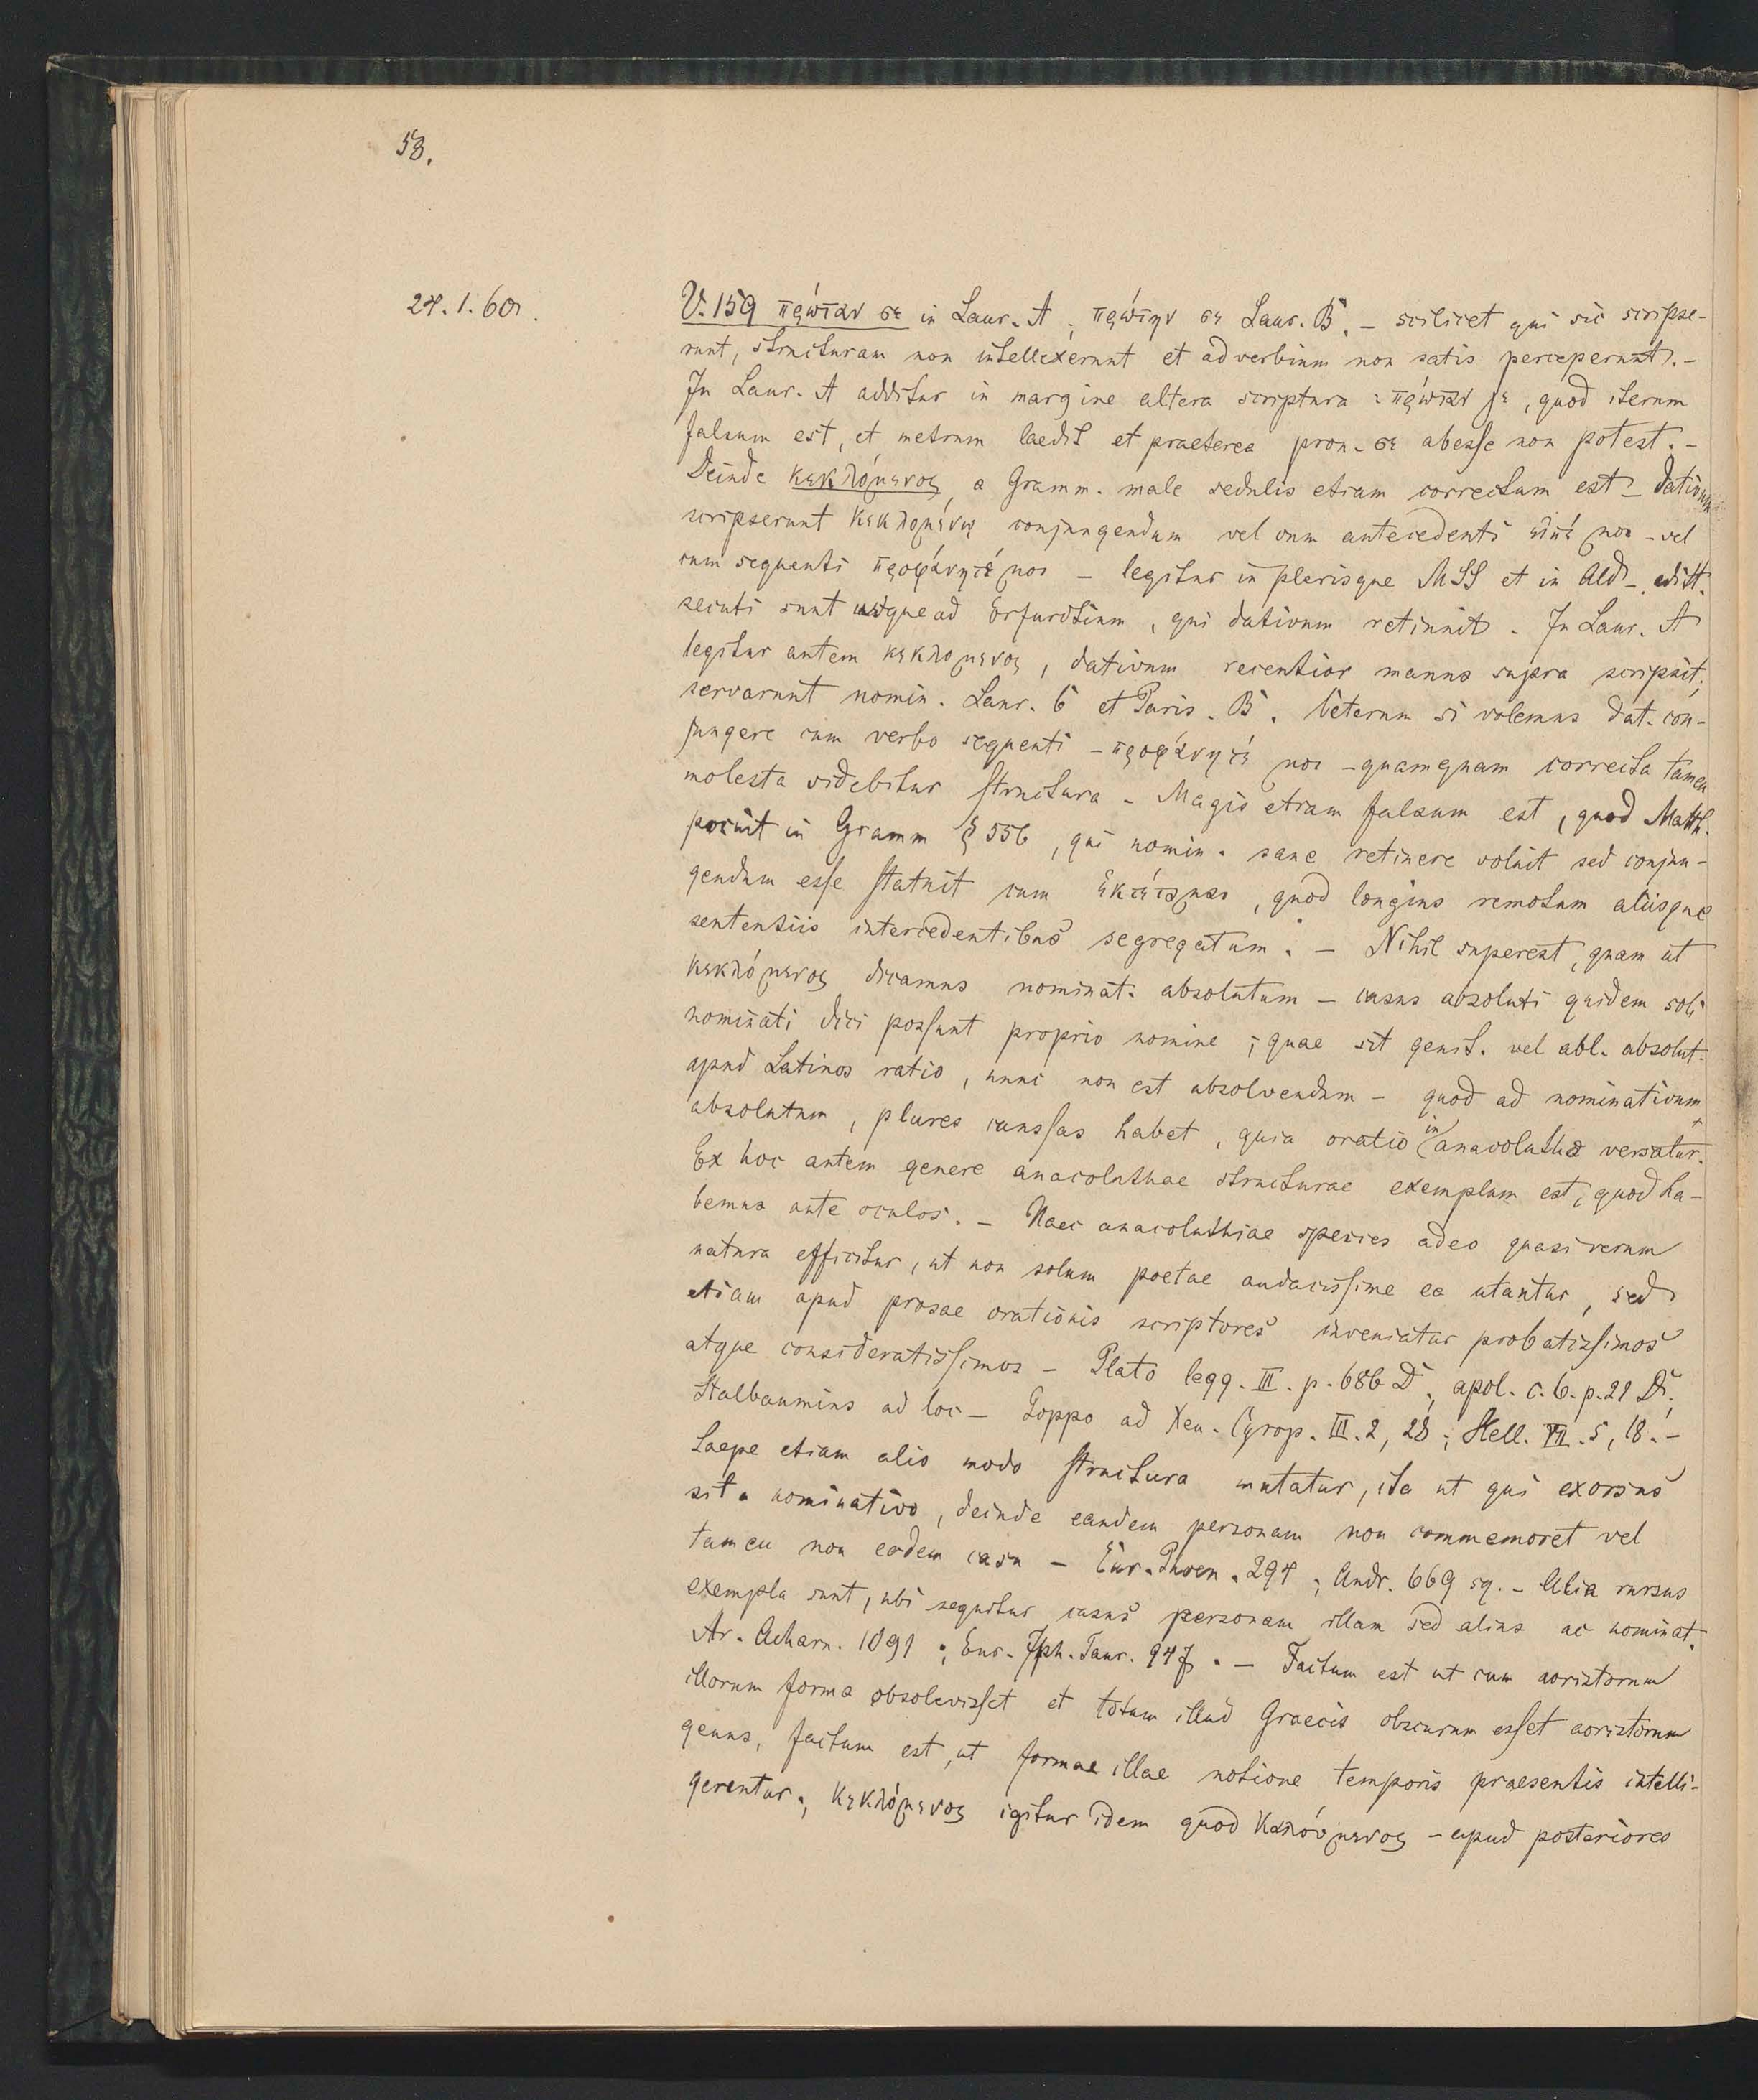 58.
24.1.60.
V. 159 πρώταν σε in Laur. A ; πρώτην σε Laur. B. – scilicet qui sic scripse-
runt, structuram non intellexerunt et adverbium non satis perceperunt. –
In Laur. A additur in margine altera scriptura : πρώταν γε, quod iterum
falsum est, et metrum laedit et praeterea pron. σε abesse non potest. –
Deinde κεκλόμενος, a Gramm. male sedulis etiam correctum est – dativum
scripserunt κεκλομένῳ conjungendum vel cum antecedenti εἰπέ μοι – vel
cum sequenti προφάνητέ μοι – legitur in plerisque MSS et in Ald – editt.
secuti sunt usque ad Erfurdtium, qui dativum retinuit. In Laur. A
legitur autem κεκλομενος, dativum recentior manus supra scripsit,
servarunt nomin. Laur. 6 et Paris. B. Ceterum si volemus dat. con-
jungere cum verbo sequenti – προφάνητέ μοι – quamquam correcta tamen
molesta videbitur structura – Magis etiam falsum est, quod Matth.
posuit in Gramm § 556, qui nomin. sane retinere voluit sed conjun-
gendum esse statuit cum ἐκτέταμαι, quod longius remotum aliisque
sententiis intercedentibus segregatum. – Nihil superest, quam ut
κεκλόμενος dicamus nominat. absolutum – casus absoluti quidem soli
nominati dici possunt proprio nomine ; quae sit genit. vel abl. absolut.
apud Latinos ratio, nunc non est absolvendum – quod ad nominativum
absolutum, plures caussas habet, quia oratio in anacolutha versatur.
Ex hoc autem genere anacoluthae structurae exemplum est, quod ha-
bemus ante oculos. – Haec anacoluthiae species adeo quasi rerum
natura efficitur, ut non solum poetae audacissime ea utantur, sed
etiam apud prosae orationis scriptores inveniatur probatissimos
atque consideratissimos – Plato legg. III. p. 686 D ; apol. c. 6. p. 21 D;
Stalbaumius ad loc – Poppo ad Xen. Cyrop. III. 2, 28 ; Hell. VII. 5, 18. –
Saepe etiam alio modo structura mutatur, ita ut qui exorsus
sit a nominativo, deinde eandem personam non commemoret vel
tamen non eodem casu – Eur. Phoen. 294 ; Andr. 669 sq. – Alia rursus
exempla sunt, ubi sequitur casus personam illam sed alius ac nominat.
Ar. Acharn. 1091 ; Eur. Iph. Taur. 947. – Factum est ut cum aoristorum
illorum forma obsolevisset et totum illud Graecis obscurum esset aoristorum
genus, factum est, ut formae illae notione temporis praesentis intelli-
gerentur ; κεκλόμενος igitur idem quod καλούμενος – apud posteriores